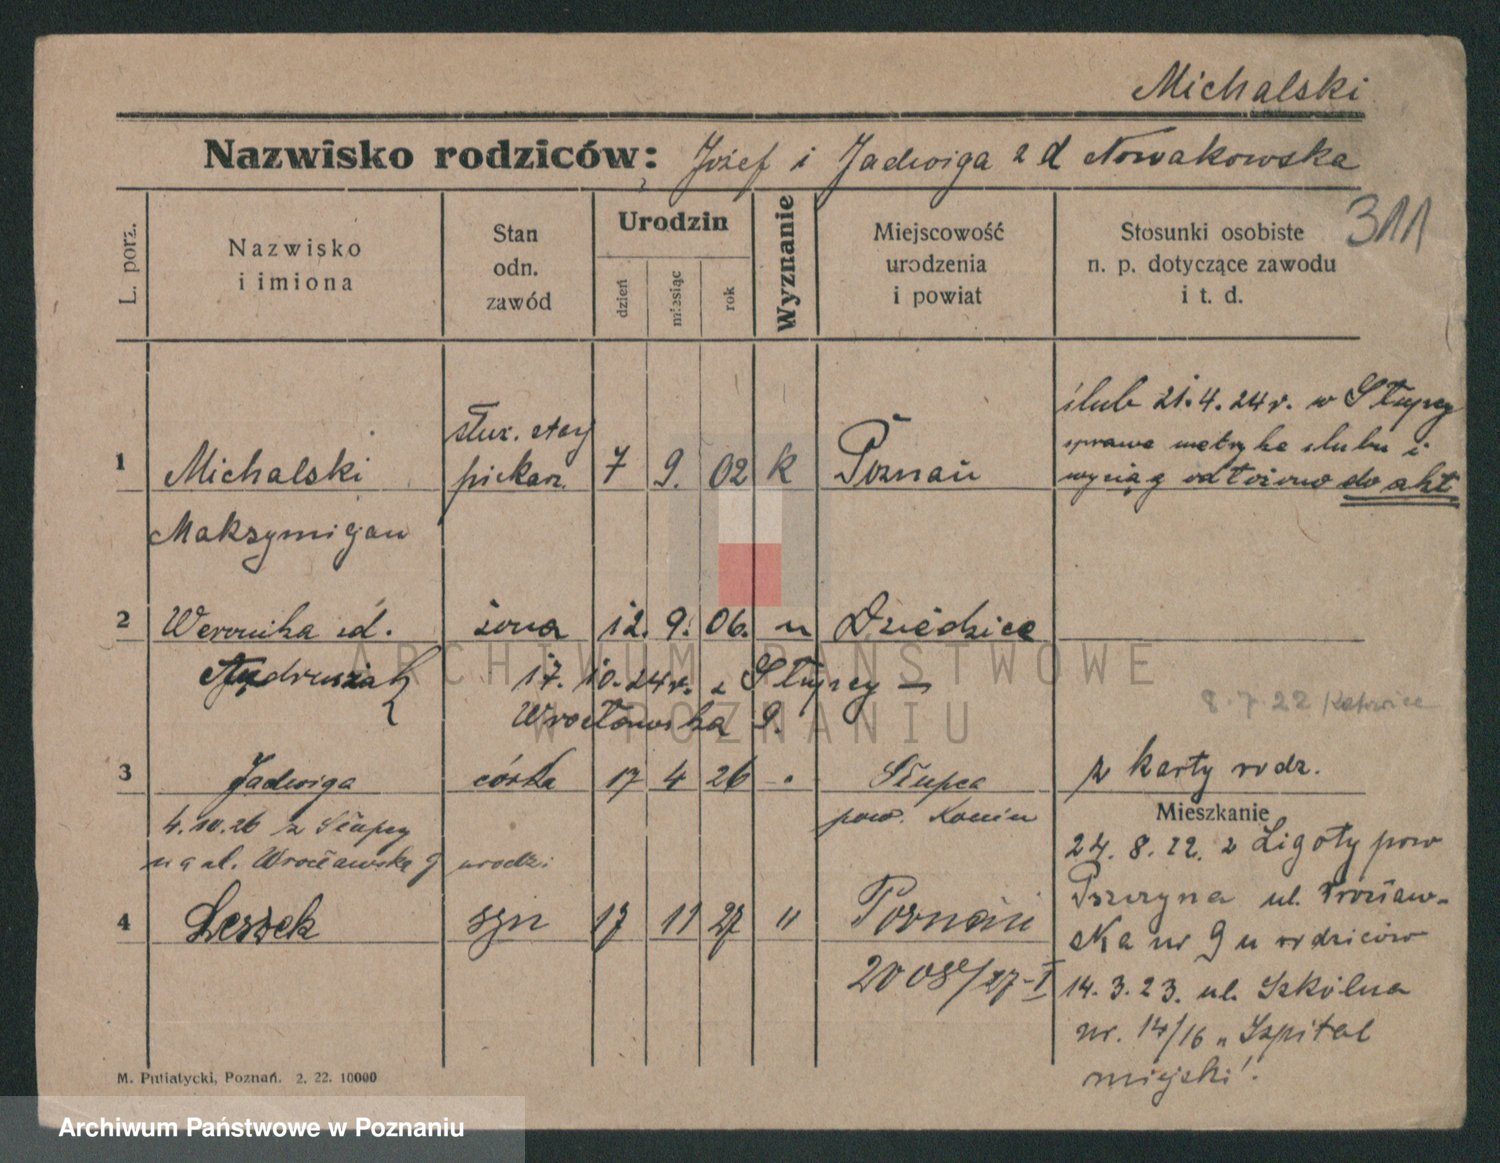 Michalski
Nazwisko rodziców: Józef i Jadwiga z d Nowakowska
311
L. porz.
Nazwisko
i imiona
Stan
odn.
zawód
Urodzin
dzień
miesiąc
rok
Wyznanie
Miejscowość
urodzenia
i powiat
Stosunki osobiste
n. p. dotyczące zawodu
i t. d.
ślub 21.4.24r. w Słupcy
metrykę ślubu i
wyciąg odłożono do akt
1 Michalski piekarz. 7 9. 02 k Poznań
Maksymiljan
2 Weronika zd. żona 12. 9. 06. " Dziedzice
Andrusiak 17. 10. 24r. z Słupcy –
Wrocławska 9.
8.7.22 Katowice
3 Jadwiga córka 17 4 26 Słupca
z karty rodz.
4.10.26 z Słupcy pow. Konin
na ul. Wrocławska 9
4 Leszek syn 17 11 27 " Poznań
2008/27-I
Mieszkanie
24. 8. 22. z Ligoty pow
Pszczyna ul. Wrocław-
ska nr 9 u rodziców
14. 3. 23. ul. Szkólna
nr. 14/16 „Szpital
miejski".
M. Putiatycki, Poznań. 2. 22. 10000
ARCHIWUM PAŃSTWOWE
W POZNANIU
Archiwum Państwowe w Poznaniu